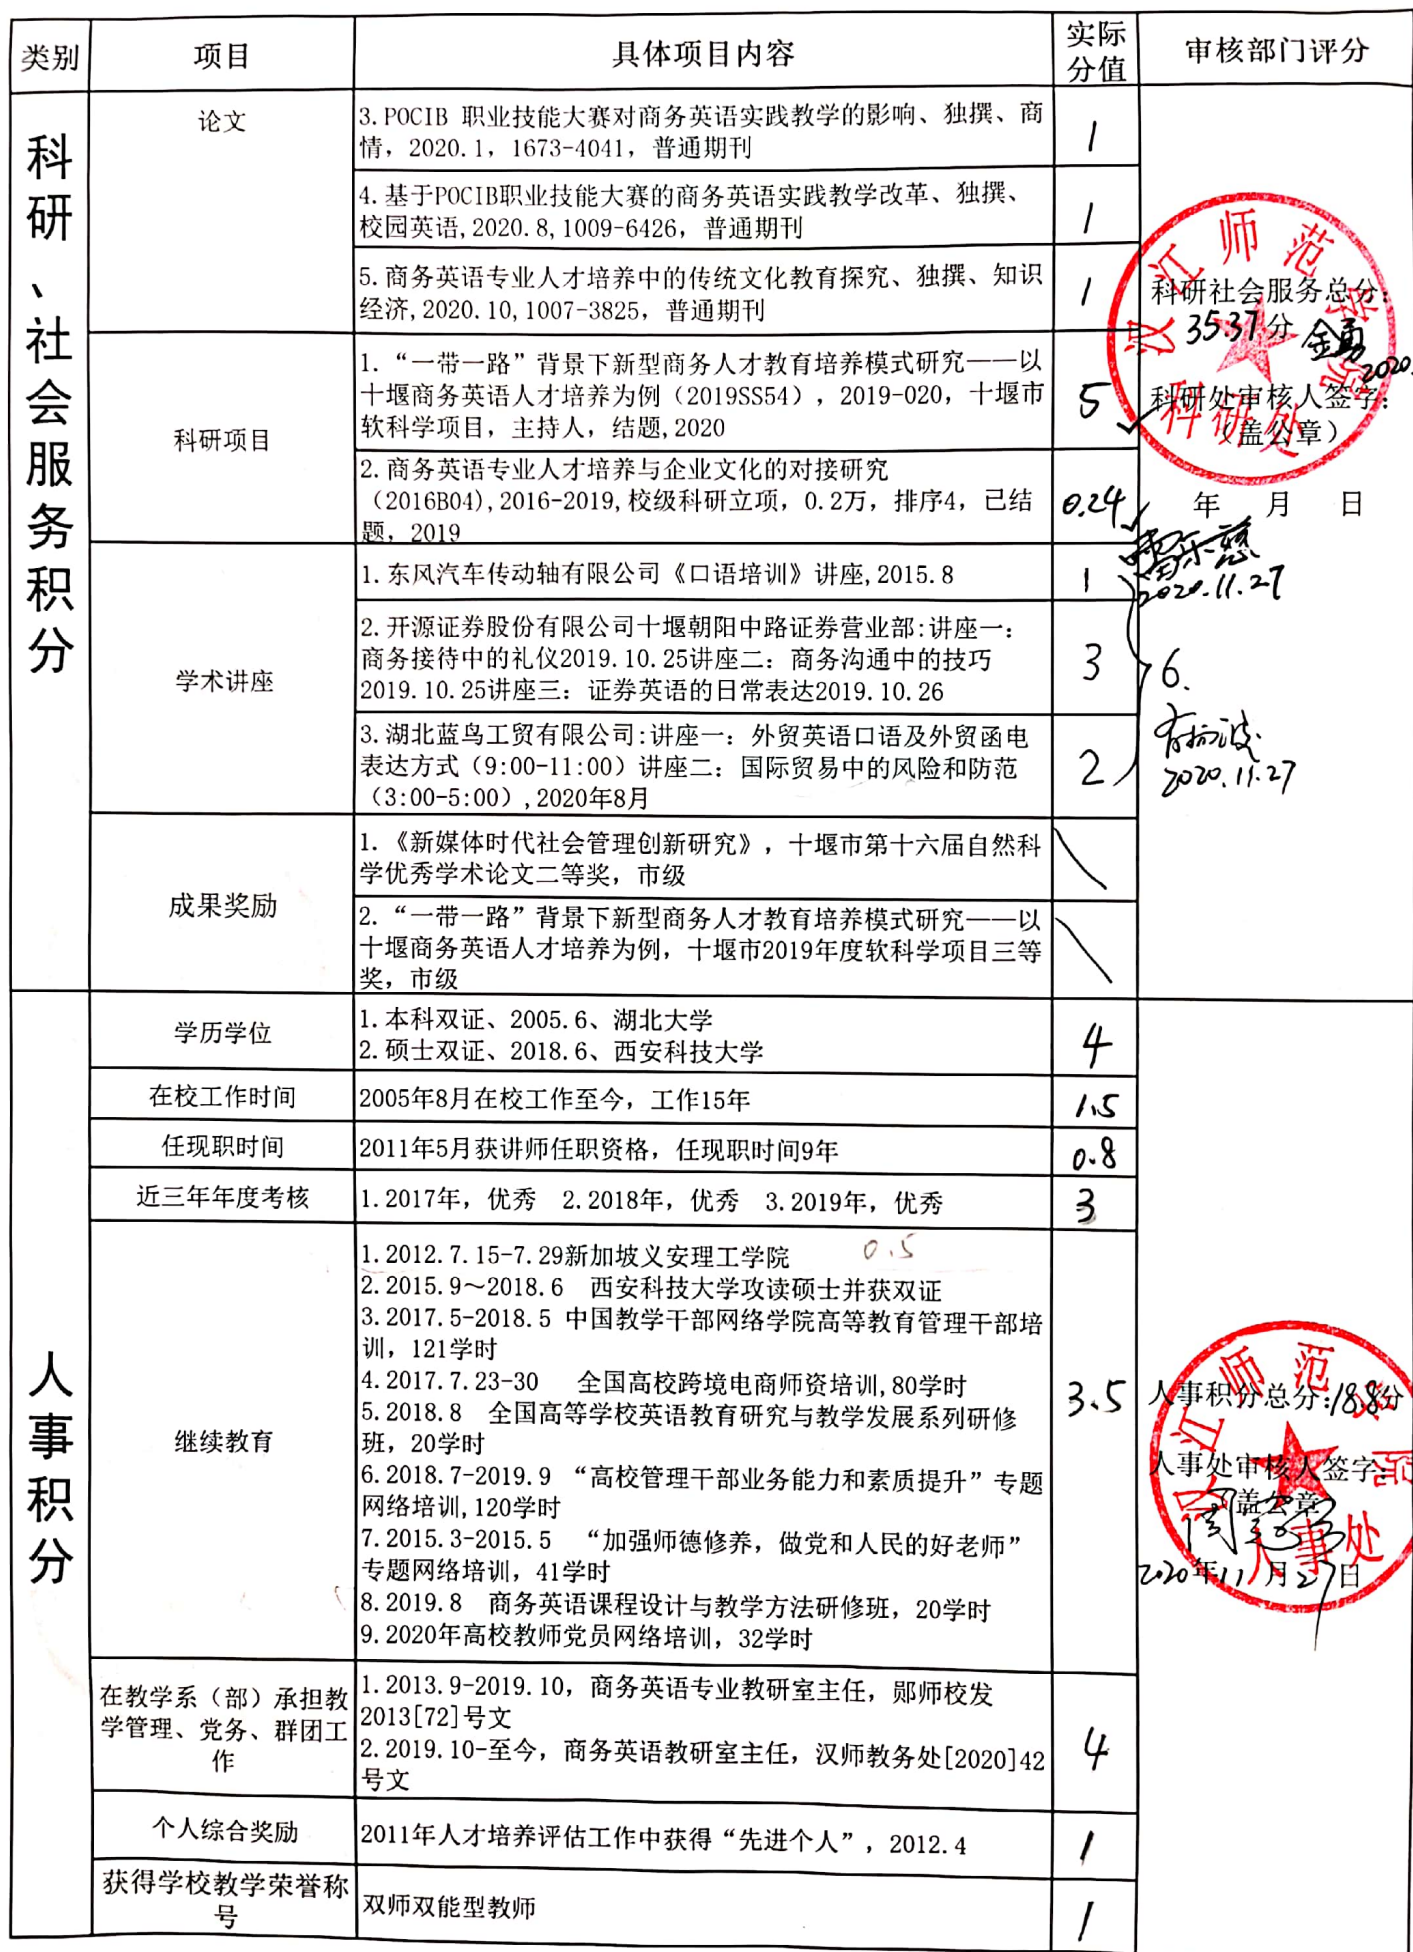 类别 项目 具体项目内容 实际分值 审核部门评分
科研、社会服务积分
论文
3.POCIB 职业技能大赛对商务英语实践教学的影响、独撰、商
情，2020.1，1673-4041，普通期刊
1
4.基于POCIB职业技能大赛的商务英语实践教学改革、独撰、
校园英语,2020.8,1009-6426，普通期刊
1
5.商务英语专业人才培养中的传统文化教育探究、独撰、知识
经济,2020.10,1007-3825，普通期刊
1
科研项目
1.“一带一路”背景下新型商务人才教育培养模式研究——以
十堰商务英语人才培养为例（2019SS54），2019-020，十堰市
软科学项目，主持人，结题,2020
5
2.商务英语专业人才培养与企业文化的对接研究
（2016B04),2016-2019,校级科研立项，0.2万，排序4，已结
题，2019
0.24
学术讲座
1.东风汽车传动轴有限公司《口语培训》讲座,2015.8
1
2.开源证券股份有限公司十堰朝阳中路证券营业部:讲座一：
商务接待中的礼仪2019.10.25讲座二：商务沟通中的技巧
2019.10.25讲座三：证券英语的日常表达2019.10.26
3
3.湖北蓝鸟工贸有限公司:讲座一：外贸英语口语及外贸函电
表达方式（9:00-11:00）讲座二：国际贸易中的风险和防范
（3:00-5:00）,2020年8月
2
成果奖励
1.《新媒体时代社会管理创新研究》，十堰市第十六届自然科
学优秀学术论文二等奖，市级
2.“一带一路”背景下新型商务人才教育培养模式研究——以
十堰商务英语人才培养为例，十堰市2019年度软科学项目三等
奖，市级
汉江师范学院
科研社会服务总分：
35.37分
2020.
科研处审核人签字：
（盖公章）
科研处
年 月 日
2020.11.27
6.
2020.11.27
人事积分
学历学位
1.本科双证、2005.6、湖北大学
2.硕士双证、2018.6、西安科技大学
4
在校工作时间
2005年8月在校工作至今，工作15年
1.5
任现职时间
2011年5月获讲师任职资格，任现职时间9年
0.8
近三年年度考核
1.2017年，优秀 2.2018年，优秀 3.2019年，优秀
3
继续教育
1.2012.7.15-7.29新加坡义安理工学院 0.5
2.2015.9～2018.6 西安科技大学攻读硕士并获双证
3.2017.5-2018.5 中国教学干部网络学院高等教育管理干部培
训，121学时
4.2017.7.23-30 全国高校跨境电商师资培训,80学时
5.2018.8 全国高等学校英语教育研究与教学发展系列研修
班，20学时
6.2018.7-2019.9 “高校管理干部业务能力和素质提升”专题
网络培训,120学时
7.2015.3-2015.5 “加强师德修养，做党和人民的好老师”
专题网络培训，41学时
8.2019.8 商务英语课程设计与教学方法研修班，20学时
9.2020年高校教师党员网络培训，32学时
3.5
在教学系（部）承担教
学管理、党务、群团工
作
1.2013.9-2019.10，商务英语专业教研室主任，郧师校发
2013[72]号文
2.2019.10-至今，商务英语教研室主任，汉师教务处[2020]42
号文
4
个人综合奖励
2011年人才培养评估工作中获得“先进个人”，2012.4
1
获得学校教学荣誉称
号
双师双能型教师
1
汉江师范学院
人事积分总分:18.8分
人事处审核人签字：
盖公章
人事处
2020年11月27日